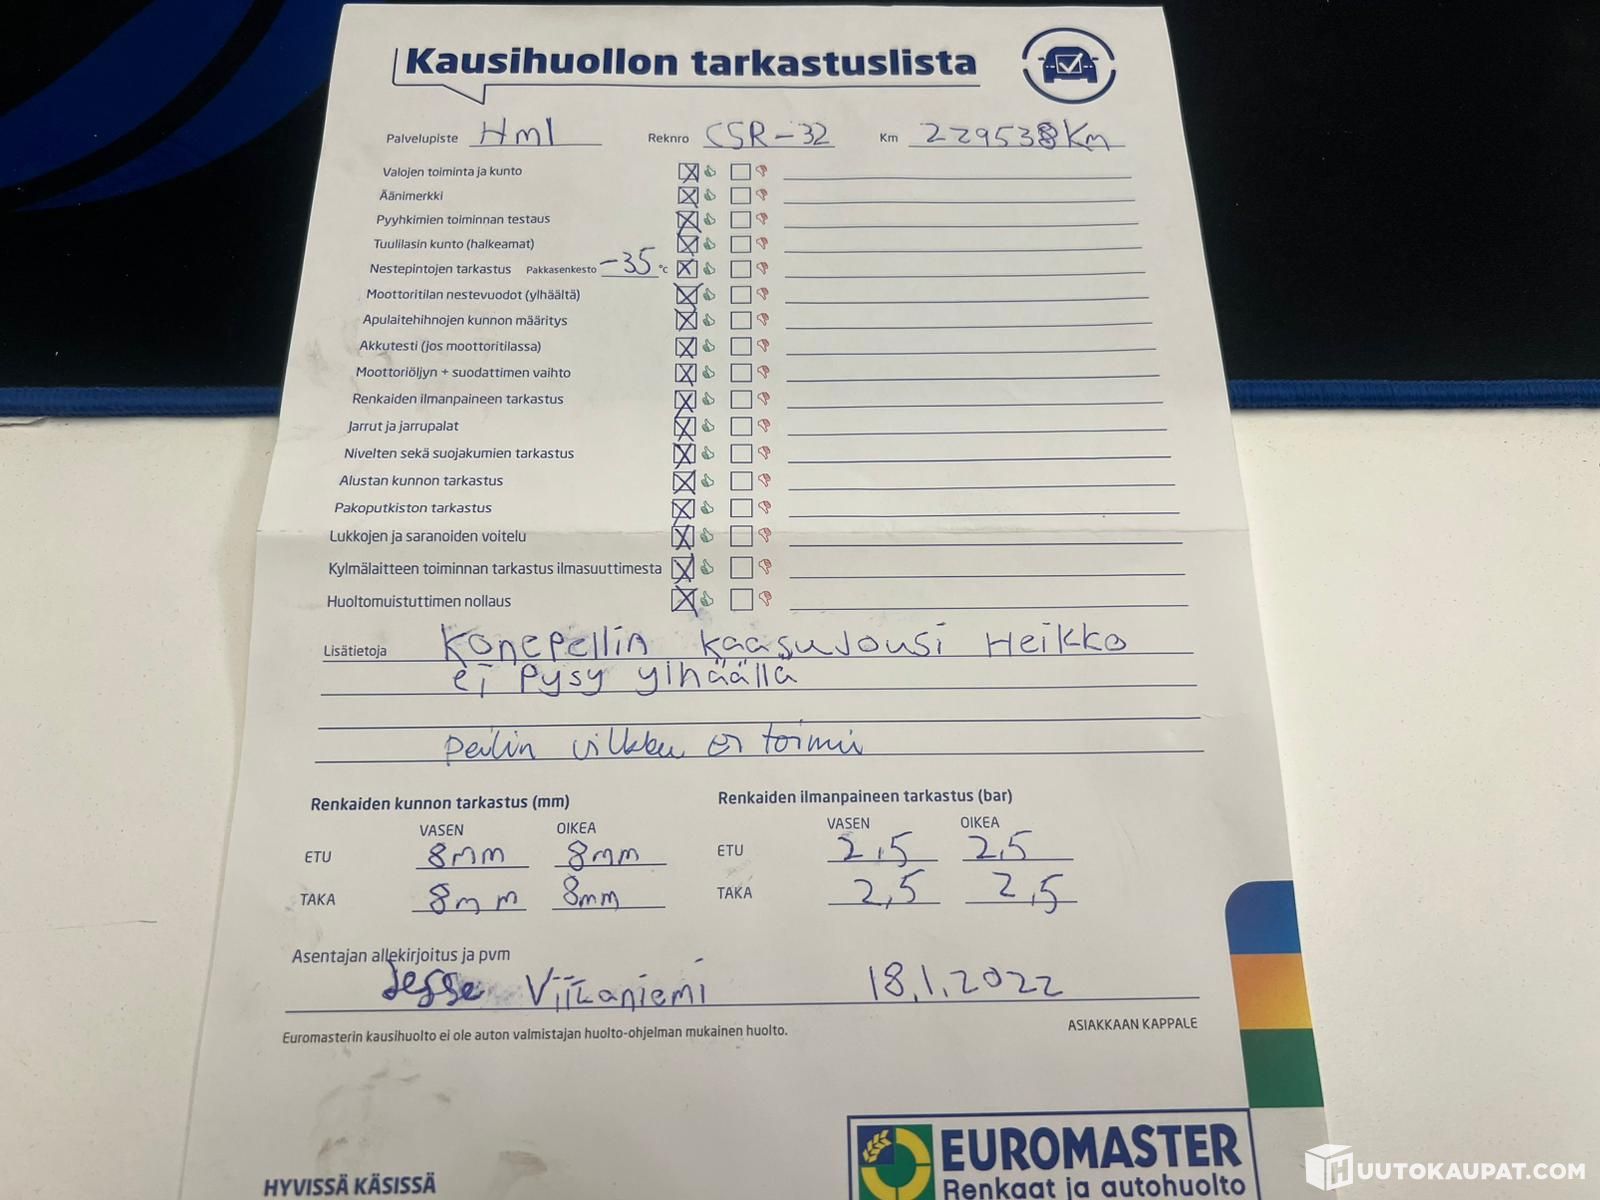 Kausihuollon tarkastuslista
Palvelupiste Hml Reknro CSR-32 Km 229538 Km
Valojen toiminta ja kunto
Äänimerkki
Pyyhkimien toiminnan testaus
Tuulilasin kunto (halkeamat)
Nestepintojen tarkastus Pakkasenkesto -35 °C
Moottoritilan nestevuodot (ylhäältä)
Apulaitehihnojen kunnon määritys
Akkutesti (jos moottoritilassa)
Moottoriöljyn + suodattimen vaihto
Renkaiden ilmanpaineen tarkastus
Jarrut ja jarrupalat
Nivelten sekä suojakumien tarkastus
Alustan kunnon tarkastus
Pakoputkiston tarkastus
Lukkojen ja saranoiden voitelu
Kylmälaitteen toiminnan tarkastus ilmasuuttimesta
Huoltomuistuttimen nollaus
Lisätietoja Konepellin kaasujousi Heikko
ei pysy ylhäällä
peilin vilkku ei toimi
Renkaiden kunnon tarkastus (mm) Renkaiden ilmanpaineen tarkastus (bar)
VASEN OIKEA VASEN OIKEA
ETU 8mm 8mm ETU 2,5 2,5
TAKA 8mm 8mm TAKA 2,5 2,5
Asentajan allekirjoitus ja pvm
Jesse Viikaniemi 18.1.2022
Euromasterin kausihuolto ei ole auton valmistajan huolto-ohjelman mukainen huolto.
ASIAKKAAN KAPPALE
EUROMASTER
HYVISSÄ KÄSISSÄ
Renkaat ja autohuolto
HUUTOKAUPAT.COM